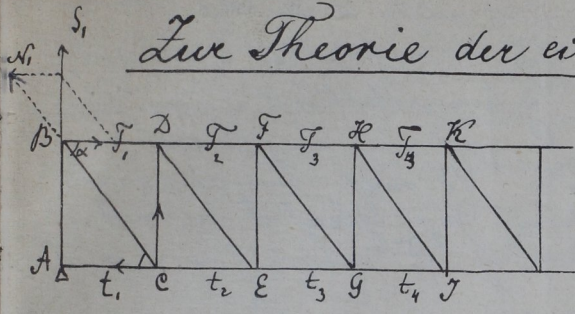 S₁
Zur Theorie der ei
N₁
B α T₁ D T₂ F T₃ H T₄ K
A t₁ C t₂ E t₃ G t₄ J